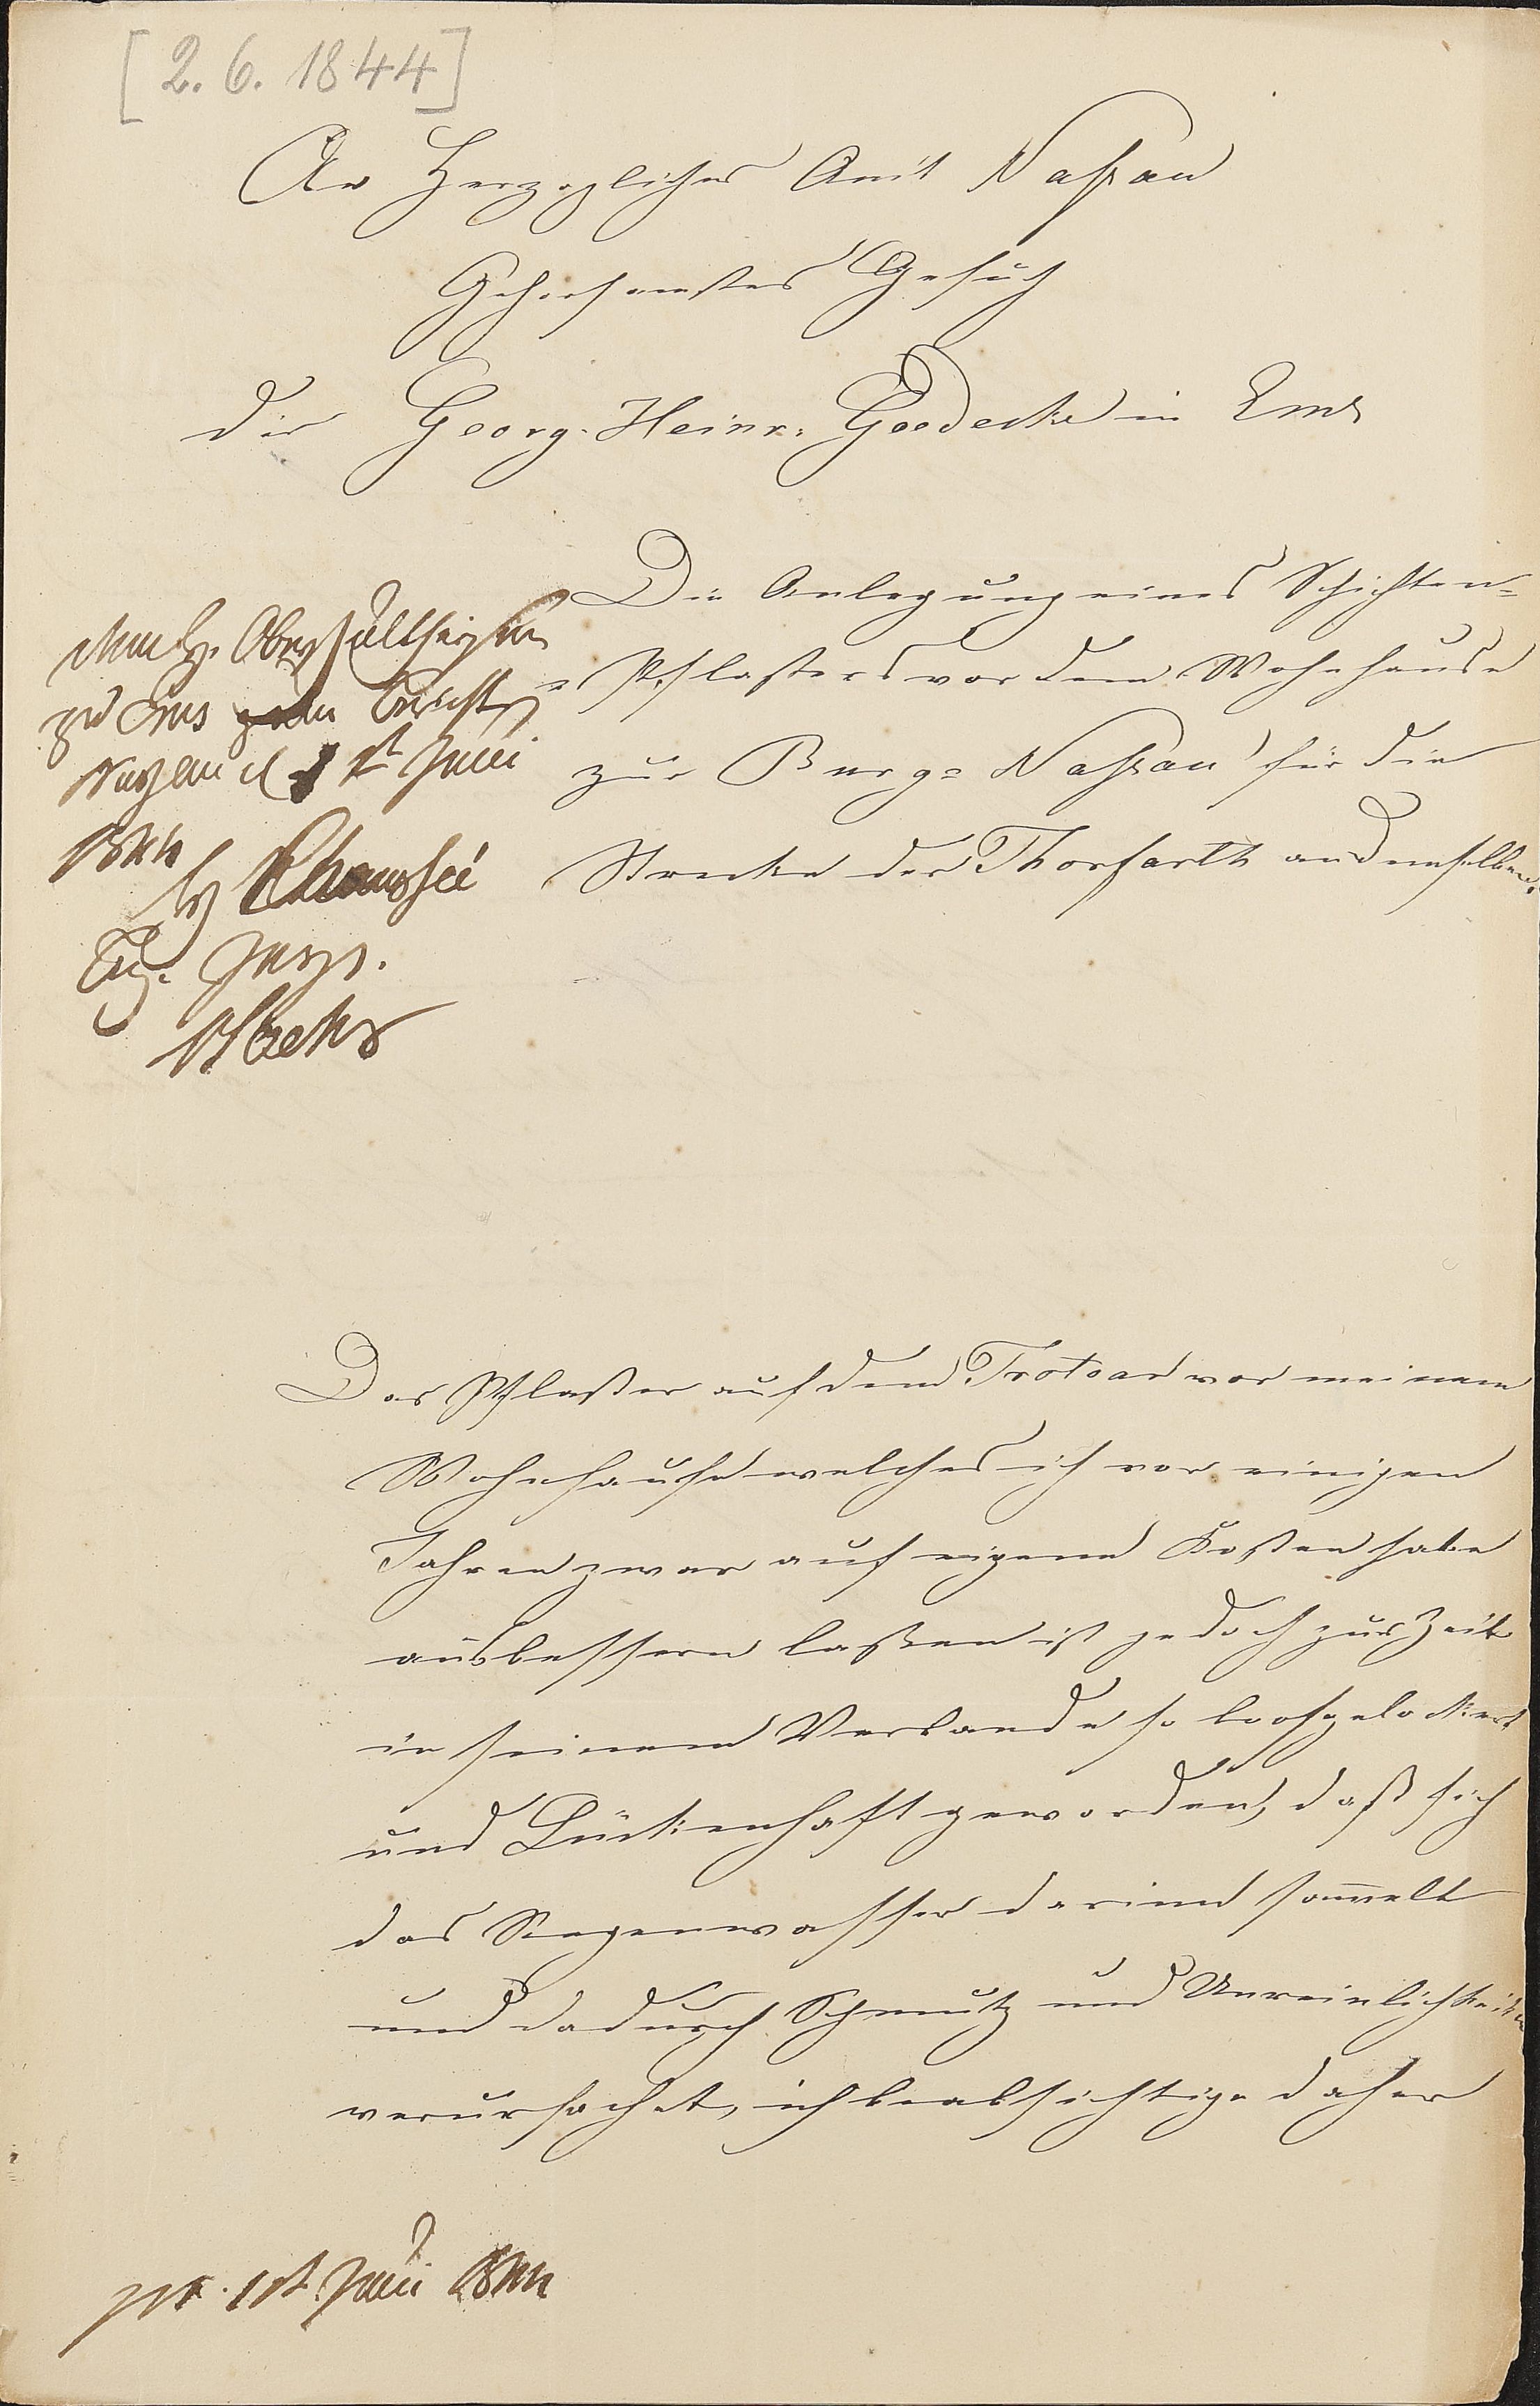 [2. 6. 1844]
An Herzogliches Amt Naßau
Gehorsamstes Gesuch
des Georg. Heinr: Goedecke in Ems
Die Anlegung eines Schichten=
=Pflasters vor dem Wohnhause
zur Burg=Naßau für die
Strecke der Thorfarth an demselben.
H. Oberschultheißen
zu Ems zum Bericht
Nassau d 1t Juni
1844
Chaussée
Das Pflaster auf dem Trotoar vor meinem
Wohnhause welches ich vor einigen
Jahren zwar auf eigene Kosten habe
ausbessern laßen ist jedoch zur Zeit
in seinem Verbande so loosgelockert
und Lückenhaft geworden, daß sich
das Regenwasser darinn sammelt
und dadurch Schmutz und Unreinlichkeiten
verursachet, ich beabsichtige daher
pr. 1t Juni 1844